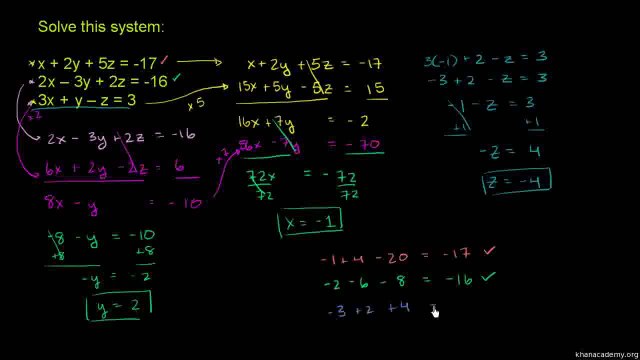 Solve this system:
x + 2y + 5z = -17 ✓
2x - 3y + 2z = -16 ✓
3x + y - z = 3
x2
x5
2x - 3y + 2z = -16
6x + 2y - 2z = 6
8x - y = -10
-8 - y = -10
+8 +8
-y = -2
y = 2
x + 2y + 5z = -17
15x + 5y - 5z = 15
16x + 7y = -2
x7
56x - 7y = -70
72x = -72
72 72
x = -1
3(-1) + 2 - z = 3
-3 + 2 - z = 3
-1 - z = 3
+1 +1
-z = 4
z = -4
-1 + 4 - 20 = -17 ✓
-2 - 6 - 8 = -16 ✓
-3 + 2 + 4 =
khanacademy.org